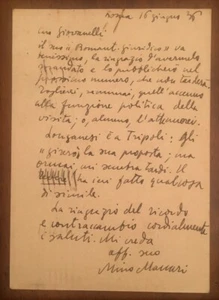 Roma 16 giugno
Caro Giovanelli
il suo "Bomont-giudizio" va
benissimo, la ringrazio d'avermelo
mandato e lo pubblicherò nel
prossimo numero, ma
toglierei, quell'accenno
alla funzione politica della
visita; o, almeno l'attenuerei.
Longanesi è a Tripoli: gli
la sua proposta; ma
ormai, mi sembra tardi. Il
ha già fatto qualcosa
di simile.
La ringrazio del ricordo
e contraccambio cordialmente
i saluti. Mi creda
aff. suo
Mino Maccari